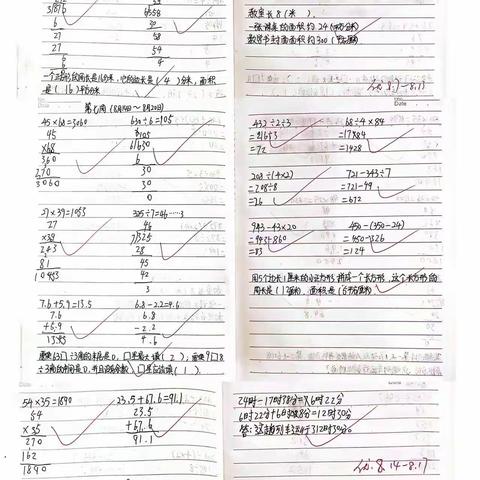 3/816
6
27
27
6
6
0
6/558
54
4
一个正方形的周长是16分米,它的边长是(4)分米,面积
是(16)平方分米
教室长8(米).
一张课桌的面积约24(平方分米)
数学书封面面积约300(平方厘米)
8.7-8.13
第七周(8月14日~8月20日)
45×68=3060 630÷6=105
45
×68
360
270
3060
105
6/630
6
30
30
0
27×39=1053 325÷7=46……3
27
×39
243
81
1053
46
7/325
28
45
42
3
7.6+5.9=13.5 6.8-2.2=4.6
7.6
+5.9
13.5
6.8
-2.2
4.6
432÷2÷3 68÷4×84
=216÷3 =17×84
=72 =1428
208÷(4×2) 721-343÷7
=208÷8 =721-49
=26 =672
943-43×20 450-(350-24)
=943-860 =450-326
=83 =124
用5个边长1厘米的小正方形拼成一个长方形,这个长方形的
周长是(12厘米),面积是(5平方厘米)
54×35=1890 23.5+67.6=91.1
54
×35
270
162
1890
23.5
+67.6
91.1
24时-17时38分=6时22分
6时22分+6时8分=12时30分
8.14-8.17